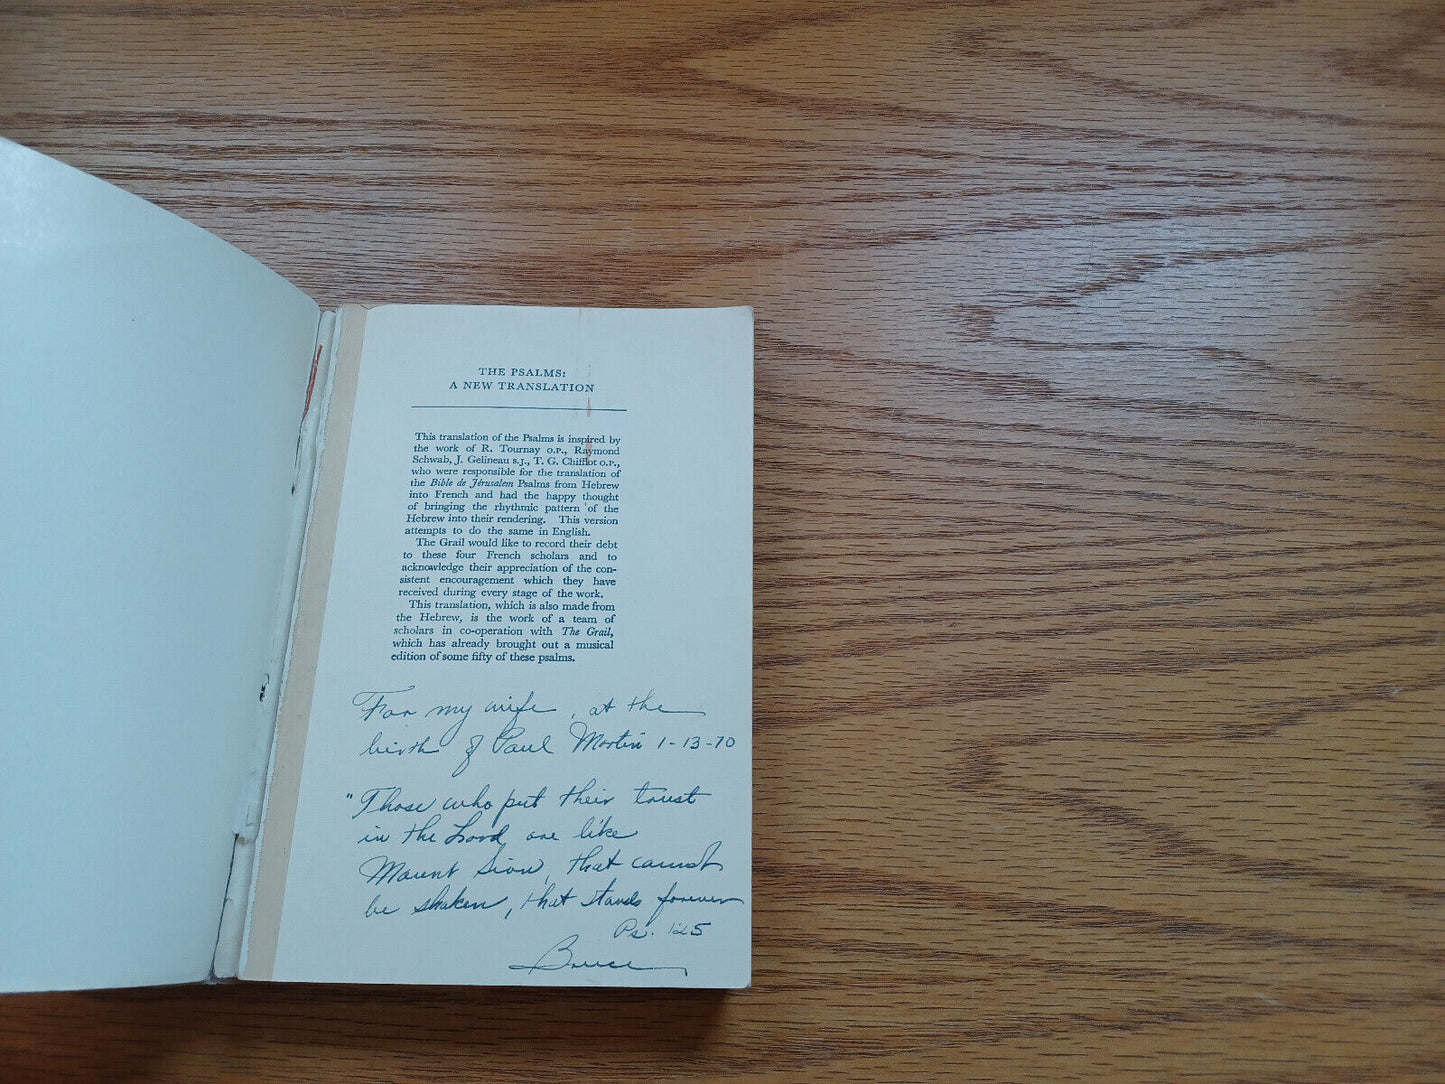 THE PSALMS:
A NEW TRANSLATION
This translation of the Psalms is inspired by
the work of R. Tournay O.P., Raymond
Schwab, J. Gelineau S.J., T. G. Chifflot O.P.,
who were responsible for the translation of
the Bible de Jérusalem Psalms from Hebrew
into French and had the happy thought
of bringing the rhythmic pattern of the
Hebrew into their rendering. This version
attempts to do the same in English.
The Grail would like to record their debt
to these four French scholars and to
acknowledge their appreciation of the con-
sistent encouragement which they have
received during every stage of the work.
This translation, which is also made from
the Hebrew, is the work of a team of
scholars in co-operation with The Grail,
which has already brought out a musical
edition of some fifty of these psalms.
For my wife, at the
birth of Paul Martin 1-13-70
"Those who put their trust
in the Lord are like
Mount Sion, that cannot
be shaken, that stands forever
Ps. 125
Bruce